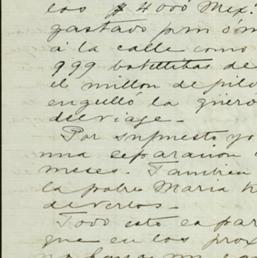 los $4000 Mex.
gastado por
á la calle como
999 botellitas de
el millon de
engullo la
del viaje.
Por supuesto yo
una separacion
meses. Tambien
la pobre Maria
de verlos.
Todo esto es par
que en los prox
no